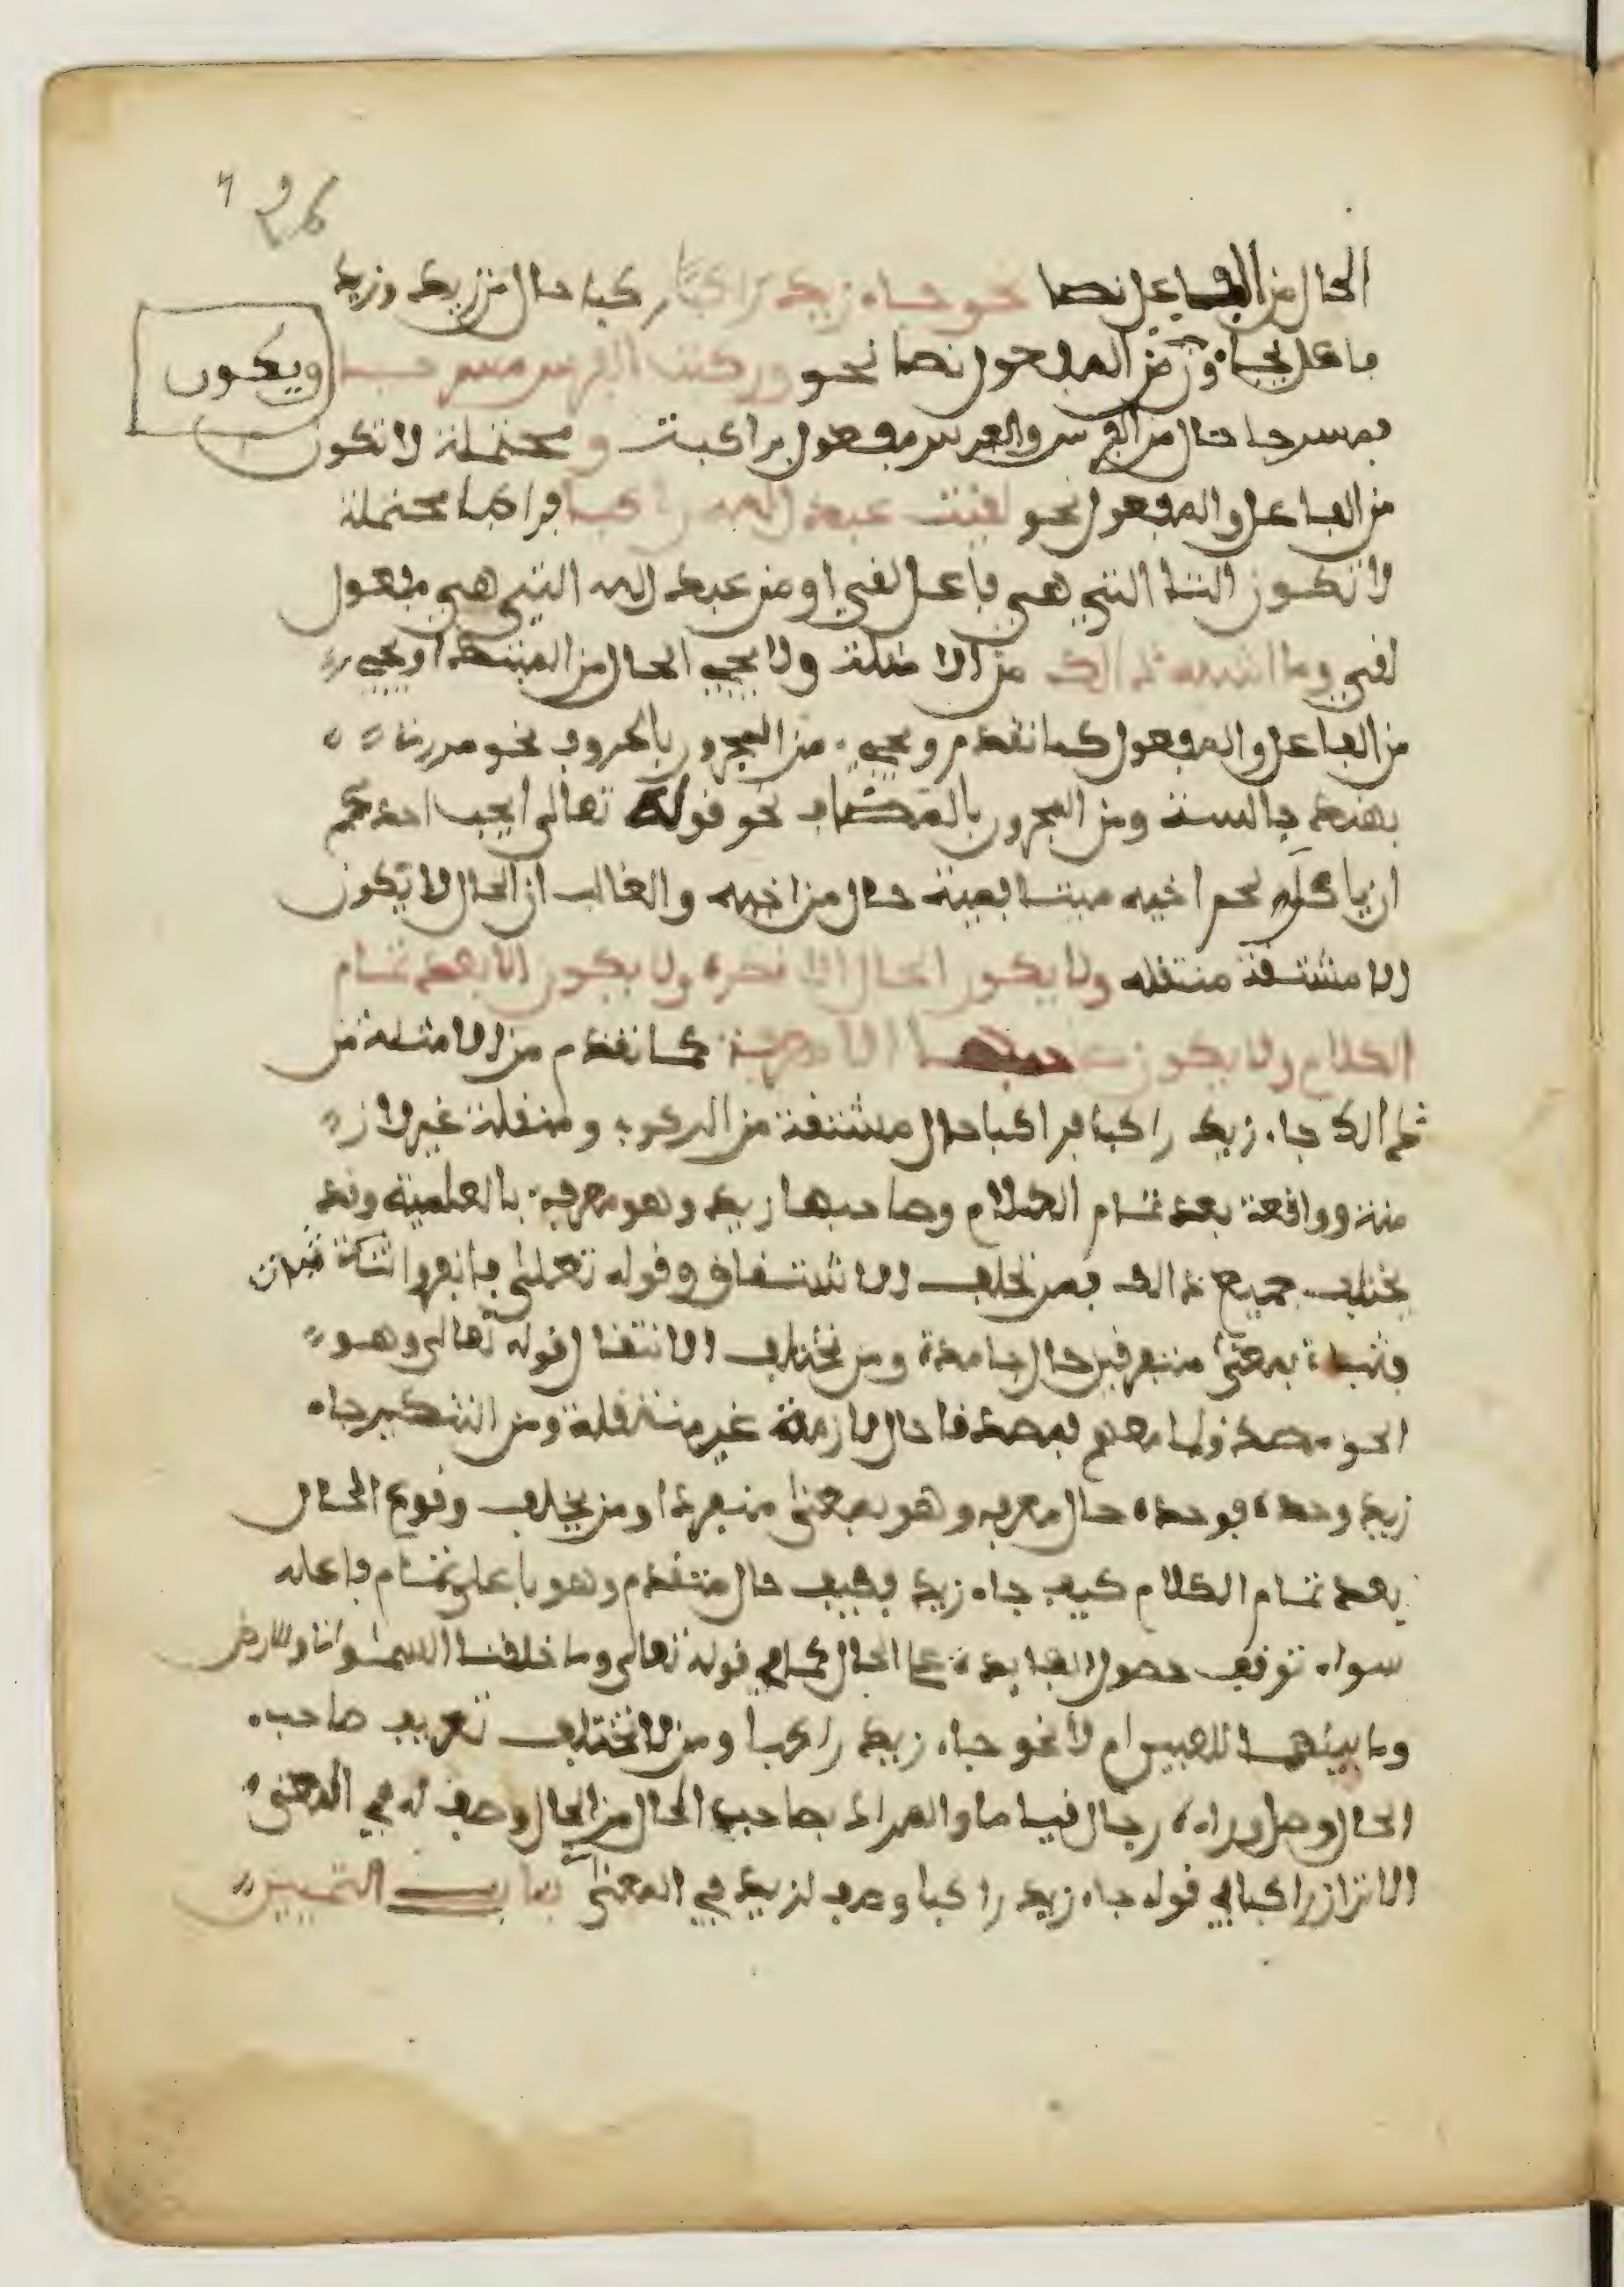 الحال من الفاعل نصا نحو جاء زيد راكبا فراكبا حال من زيد وزيد
فاعل بجاء ومن المفعول نصا نحو وركبت الفرس مسرجا ويكون
فمسرجا حال من الفرس والفرس مفعول بركبت و محتملة لان تكون
من الفاعل والمفعول نحو لقيت عبد الله راكبا فراكبا محتملة
لان تكون التاء التي هي فاعل لقي او من عبد الله التي هي مفعول
لقي وما اشبه ذالك من الامثلة ولا يجيء الحال من المبتدا ويجيء
من الفاعل والمفعول كما تقدم ويجيء من المجرور بالحروف نحو مررت
بهند جالسة ومن المجرور بالمضاف نحو قوله تعالى ايحب احدكم
ان ياكل لحم اخيه ميتا فميتا حال من اخيه والغالب ان الحال لا تكون
الا مشتقة منتقلة ولا يكون الحال الا نكرة ولا يكون الا بعد تمام
الكلام ولا يكون صاحبها الا معرفة كما تقدم من الامثلة من
ذالك جاء زيد راكبا فراكبا حال مشتقة من الركوب ومنتقلة غير لازمة
منه وواقعة بعد تمام الكلام وصاحبها زيد وهو معرفة بالعلمية وقد
يختلف جميع ذالك فمن تخلف الاشتقاق قوله تعلى فانفروا ثبات
فثبات بمعنى متفرقين حال جامدة ومن تختلف الانتقال قوله تعالى وهو
الحق مصدقا لما معهم فمصدقا حال لازمة غير منتقلة ومن التنكير جاء
زيد وحده فوحده حال معرفة وهو بمعنى منفردا ومن تخلف وقوع الحال
بعد تمام الكلام كيف جاء زيد فكيف حال متقدم وهو فاعل تمام فاعله
سواء توقف حصول الفائدة على الحال كما في قوله تعالى وما خلقنا السموات والارض
وما بينهما للعبين ام لا نحو جاء زيد راكبا ومن لا تختلف تعريف صاحب
الحال وصلى وراءه رجال قياما والمراد بصاحب الحال من الحال وصف له في المعنى
الا ترا ان راكبا في قوله جاء زيد راكبا وصف لزيد في المعنى باب التمييز